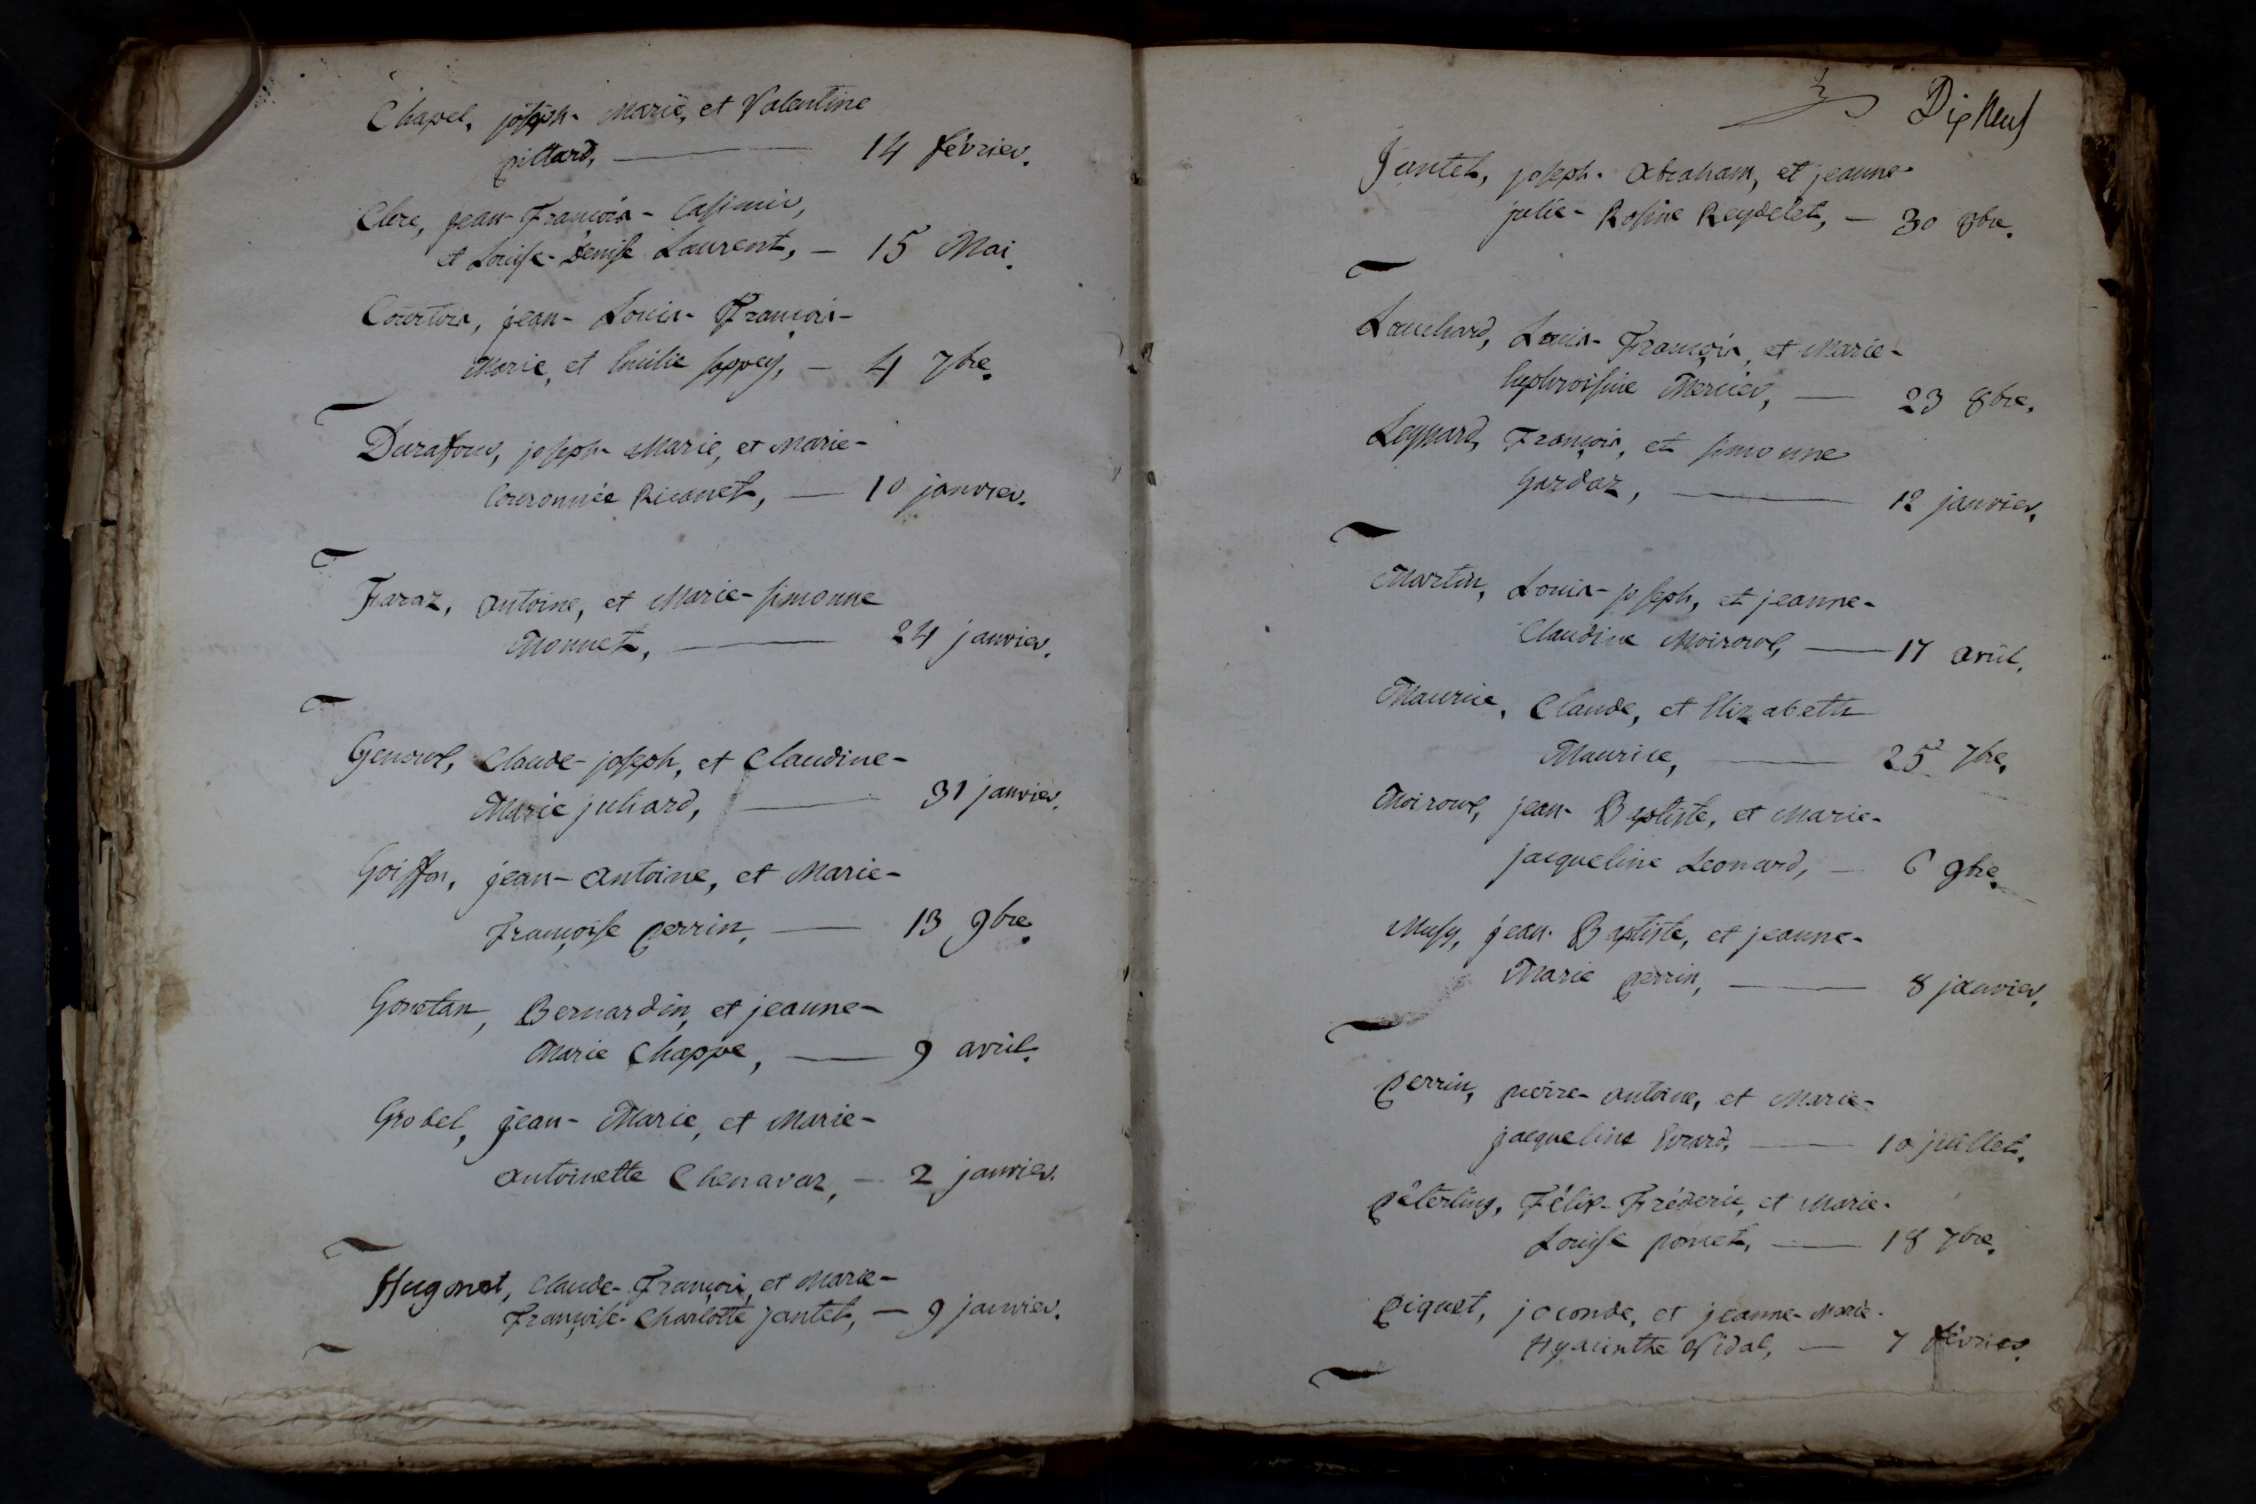 Chapel, joseph-Marie, et Valentine
pillard, — 14 février.
Clerc, jean-François-Casimir,
et Louise-Denise Laurent, — 15 Mai.
Courtois, jean-Louis-François-
Marie, et Emilie sappey, — 4 7bre.
Durafour, joseph-Marie, et Marie-
Couronnée Ricanet, — 10 janvier.
Faraz, antoine, et Marie-simonne
Monnet, — 24 janvier.
Genoud, Claude-joseph, et Claudine-
Marie juhard, — 31 janvier.
Goiffon, jean-antoine, et Marie-
Françoise perrin, — 13 9bre.
Gonetan, Bernardin, et jeanne-
Marie Chappe, — 9 avril.
Grobel, jean-Marie, et Marie-
antoinette Chenavaz, — 2 janvier.
Hugonot, Claude-François, et Marie-
Françoise-Charlotte jantet, — 9 janvier.
Dix Neuf
Jantet, joseph-abraham, et jeanne-
julie-Rosine Reydelet, — 30 8bre.
Louchard, Louis-François, et Marie-
Euphroisine Mercier, — 23 8bre.
Leynard, François, et simonne
Gardaz, — 12 janvier.
Martin, Louis-joseph, et jeanne-
Claudine Moiroud, — 17 avril.
Maurice, Claude, et Elizabeth
Maurice, — 25 7bre.
Moiroud, jean-Baptiste, et Marie-
jacqueline Leonard, — 6 9bre.
Musy, jean-Baptiste, et jeanne-
Marie perrin, — 8 janvier.
perrin, pierre-antoine, et Marie-
jacqueline Evrard, — 10 juillet.
péterling, Félix-Fréderic, et Marie-
Louise poncet, — 18 7bre.
piquet, joconde, et jeanne-Marie-
Hyacinthe Vidal, — 7 février.